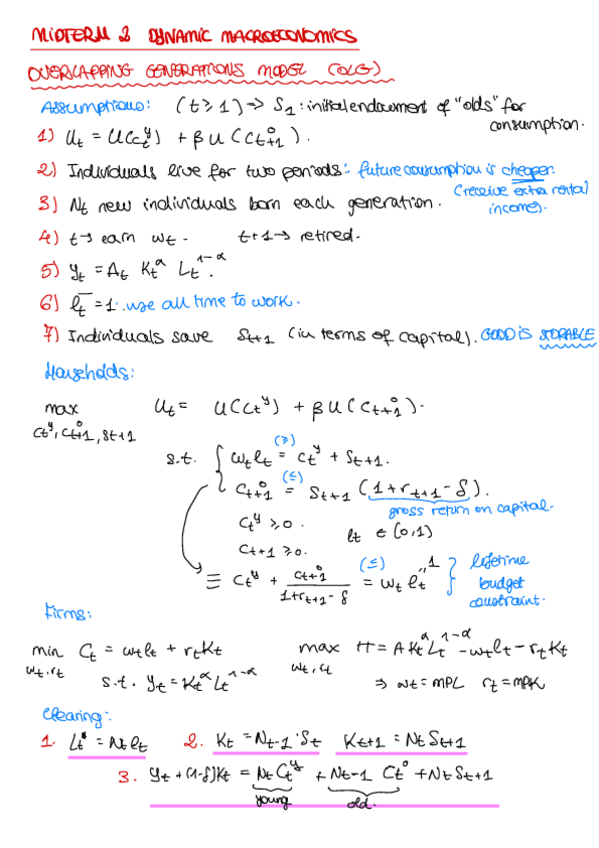 MIDTERM 2 DYNAMIC MACROECONOMICS
OVERLAPPING GENERATIONS MODEL (OLG)
Assumptions: (t ≥ 1) → S₁ : initial endowment of "olds" for consumption.
1) Uₜ = U(Cₜʸ) + β U (Cₜ₊₁ᵒ).
2) Individuals live for two periods: future consumption is cheaper (receive extra rental income).
3) Nₜ new individuals born each generation.
4) t → earn wₜ. t+1 → retired.
5) yₜ = Aₜ Kₜ^α Lₜ^1-α.
6) l̄ₜ = 1. use all time to work.
7) Individuals save Sₜ₊₁ (in terms of capital). GOOD IS STORABLE
Households:
max Uₜ = U(Cₜʸ) + β U (Cₜ₊₁ᵒ).
Cₜʸ, Cₜ₊₁ᵒ, Sₜ₊₁
(≥)
s.t. { wₜlₜ = Cₜʸ + Sₜ₊₁.
(≤)
Cₜ₊₁ᵒ = Sₜ₊₁ (1 + rₜ₊₁ - δ).
gross return on capital.
Cₜʸ ≥ 0. lₜ ∈ (0,1)
Cₜ₊₁ ≥ 0.
≡ Cₜʸ + Cₜ₊₁ᵒ / 1+rₜ₊₁-δ (≤) = wₜ lₜ 1 } lifetime budget constraint.
Firms:
min Cₜ = wₜlₜ + rₜKₜ max Π = A Kₜ^α Lₜ^1-α - wₜlₜ - rₜKₜ
wₜ, rₜ s.t. yₜ = Kₜ^α Lₜ^1-α wₜ, rₜ ⇒ wₜ = MPL rₜ = MPK
Clearing:
1. Lₜ* = Nₜlₜ 2. Kₜ = Nₜ₋₁ · Sₜ Kₜ₊₁ = Nₜ Sₜ₊₁
3. yₜ + (1-δ)Kₜ = Nₜ Cₜʸ + Nₜ₋₁ Cₜᵒ + Nₜ Sₜ₊₁
young old.